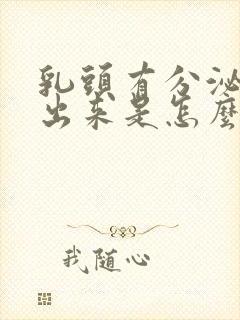 乳頭有分泌
出來是怎麼
我随心